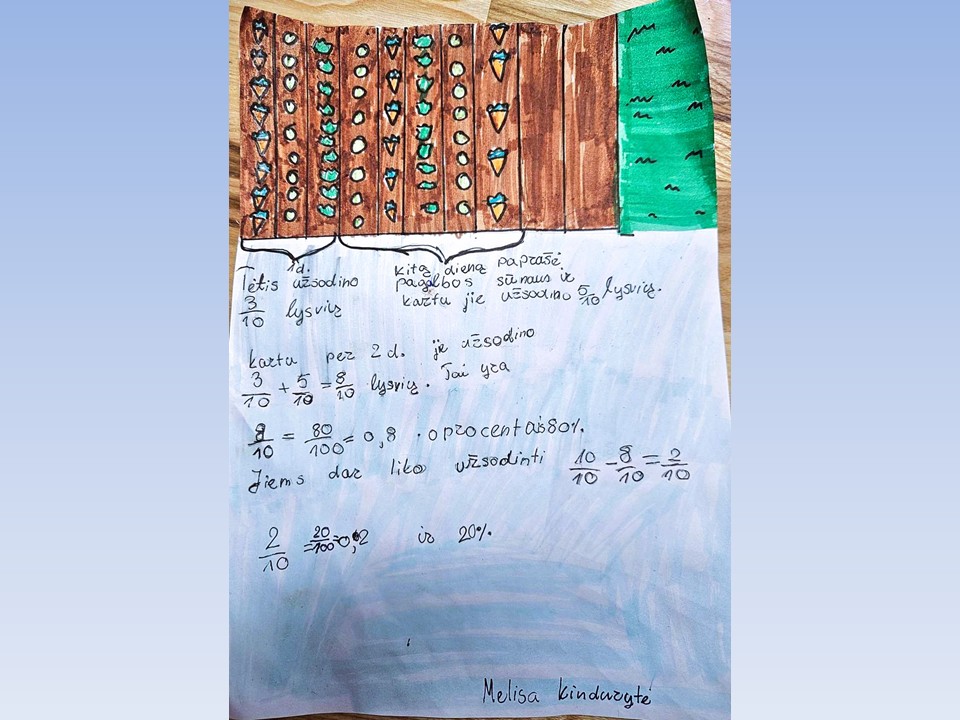 1d.
Tėtis užsodino
3/10 lysvių
kitą dieną paprašė
pagalbos sūnaus ir
kartu jie užsodino 5/10 lysvių.
kartu per 2 d. jie užsodino
3/10 + 5/10 = 8/10 lysvių. Tai yra
8/10 = 80/100 = 0,8 . o procentais 80%.
Jiems dar liko užsodinti 10/10 - 8/10 = 2/10
2/10 = 20/100 = 0,2 ir 20%.
Melisa